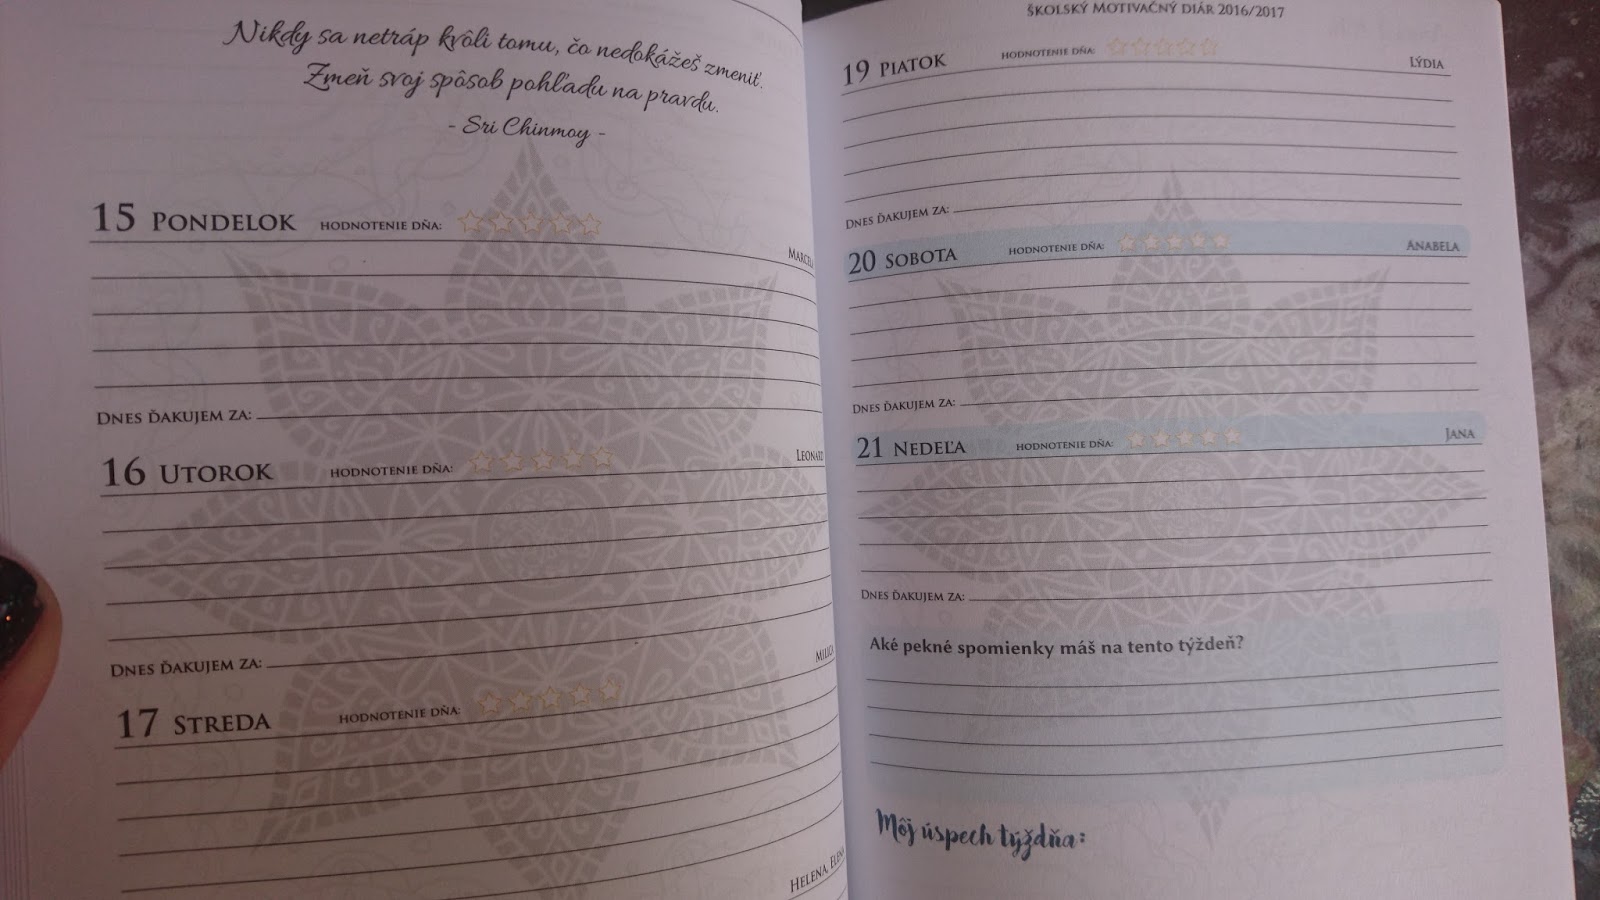 Nikdy sa netráp kvôli tomu, čo nedokážeš zmeniť.
Zmeň svoj spôsob pohľadu na pravdu.
- Sri Chinmoy -
15 PONDELOK HODNOTENIE DŇA:
DNES ĎAKUJEM ZA:
16 UTOROK HODNOTENIE DŇA:
DNES ĎAKUJEM ZA:
17 STREDA HODNOTENIE DŇA:
HELENA, ELENA
ŠKOLSKÝ MOTIVAČNÝ DIÁR 2016/2017
19 PIATOK HODNOTENIE DŇA: LÝDIA
DNES ĎAKUJEM ZA:
20 SOBOTA HODNOTENIE DŇA: ANABELA
DNES ĎAKUJEM ZA:
21 NEDEĽA HODNOTENIE DŇA: JANA
DNES ĎAKUJEM ZA:
Aké pekné spomienky máš na tento týždeň?
Môj úspech týždňa: